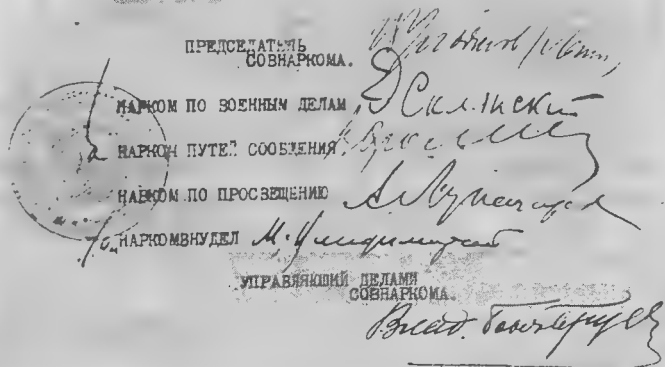 ПРЕДСЕДАТЕЛЬ
СОВНАРКОМА. В Ульянов (Ленин)
НАРКОМ ПО ВОЕННЫМ ДЕЛАМ Э Склянский
НАРКОМ ПУТЕЙ СООБЩЕНИЯ
НАРКОМ ПО ПРОСВЕЩЕНИЮ А. Луначарск
НАРКОМВНУДЕЛ М.
УПРАВЛЯЮЩИЙ ДЕЛАМИ
СОВНАРКОМА.
Влад. Бонч-Бруев